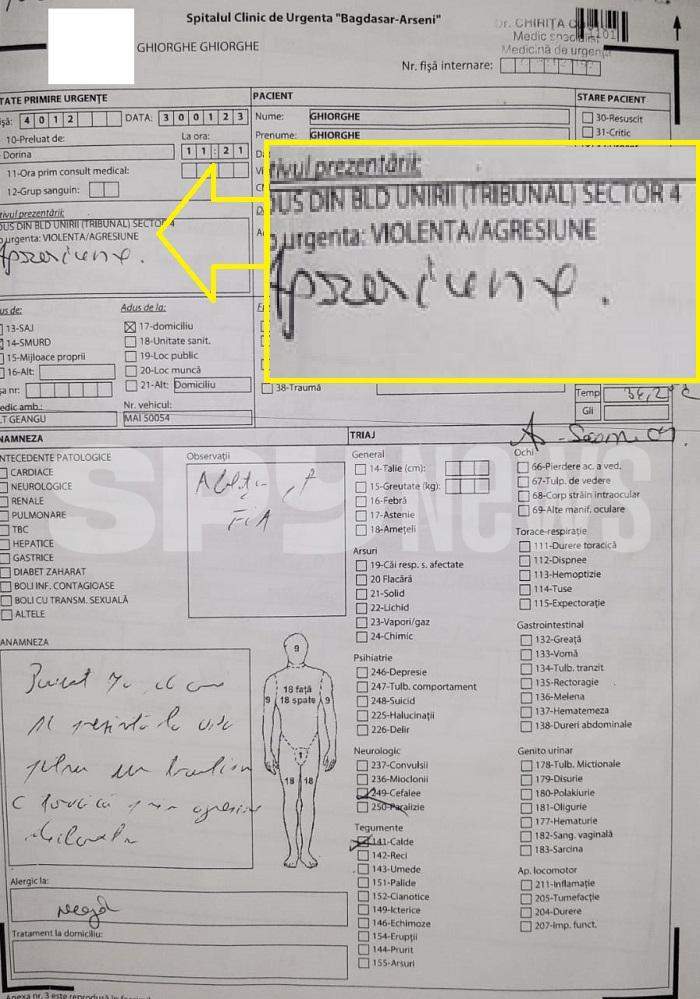 Spitalul Clinic de Urgenta "Bagdasar-Arseni"
GHIORGHE GHIORGHE
Dr. CHIRIȚA
Medic specialist
Medicină de urgență
Nr. fișă internare:
TATE PRIMIRE URGENȚE
PACIENT
STARE PACIENT
4 0 1 2
DATA: 3 0 0 1 2 3
Nume: GHIORGHE
30-Resuscit
10-Preluat de:
La ora:
Prenume: GHIORGHE
31-Critic
Dorina
1 1 : 2 1
11-Ora prim consult medical:
12-Grup sanguin:
tivul prezentării:
DUS DIN BLD UNIRII (TRIBUNAL) SECTOR 4
urgenta: VIOLENTA/AGRESIUNE
tivul prezentării:
DUS DIN BLD UNIRII (TRIBUNAL) SECTOR 4
urgenta: VIOLENTA/AGRESIUNE
us de:
Adus de la:
13-SAJ
17-domiciliu
14-SMURD
18-Unitate sanit.
15-Mijloace proprii
19-Loc public
16-Alt:
20-Loc muncă
21-Alt: Domiciliu
38-Traumă
Temp 36,2
Gli
edic amb.:
Nr. vehicul:
T GEANGU
MAI 50054
NAMNEZA
TRIAJ
NTECEDENTE PATOLOGICE
Observații
CARDIACE
NEUROLOGICE
RENALE
PULMONARE
TBC
HEPATICE
GASTRICE
DIABET ZAHARAT
BOLI INF. CONTAGIOASE
BOLI CU TRANSM. SEXUALĂ
ALTELE
SPYNEWS
General
14-Talie (cm):
15-Greutate (kg):
16-Febră
17-Astenie
18-Amețeli
Arsuri
19-Căi resp. s. afectate
20 Flacără
21-Solid
22-Lichid
23-Vapori/gaz
24-Chimic
Psihiatrie
246-Depresie
247-Tulb. comportament
248-Suicid
225-Halucinații
226-Delir
Neurologic
237-Convulsii
236-Mioclonii
249-Cefalee
250-Paralizie
Tegumente
141-Calde
142-Reci
143-Umede
151-Palide
152-Cianotice
149-Icterice
146-Echimoze
154-Erupții
144-Prurit
155-Arsuri
Ochi
66-Pierdere ac. a ved.
67-Tulp. de vedere
68-Corp străin intraocular
69-Alte manif. oculare
Torace-respirație
111-Durere toracică
112-Dispnee
113-Hemoptizie
114-Tuse
115-Expectorație
Gastrointestinal
132-Greață
133-Vomă
134-Tulb. tranzit
135-Rectoragie
136-Melena
137-Hematemeza
138-Dureri abdominale
Genito urinar
178-Tulb. Mictionale
179-Disurie
180-Polakiurie
181-Oligurie
177-Hematurie
182-Sang. vaginală
183-Sarcina
Ap. locomotor
211-Inflamație
205-Tumefacție
204-Durere
207-Imp. funct.
ANAMNEZA
9
18 față
9 18 spate 9
1
18 18
Alergic la:
neagă
Tratament la domiciliu:
Anexa nr. 3 este